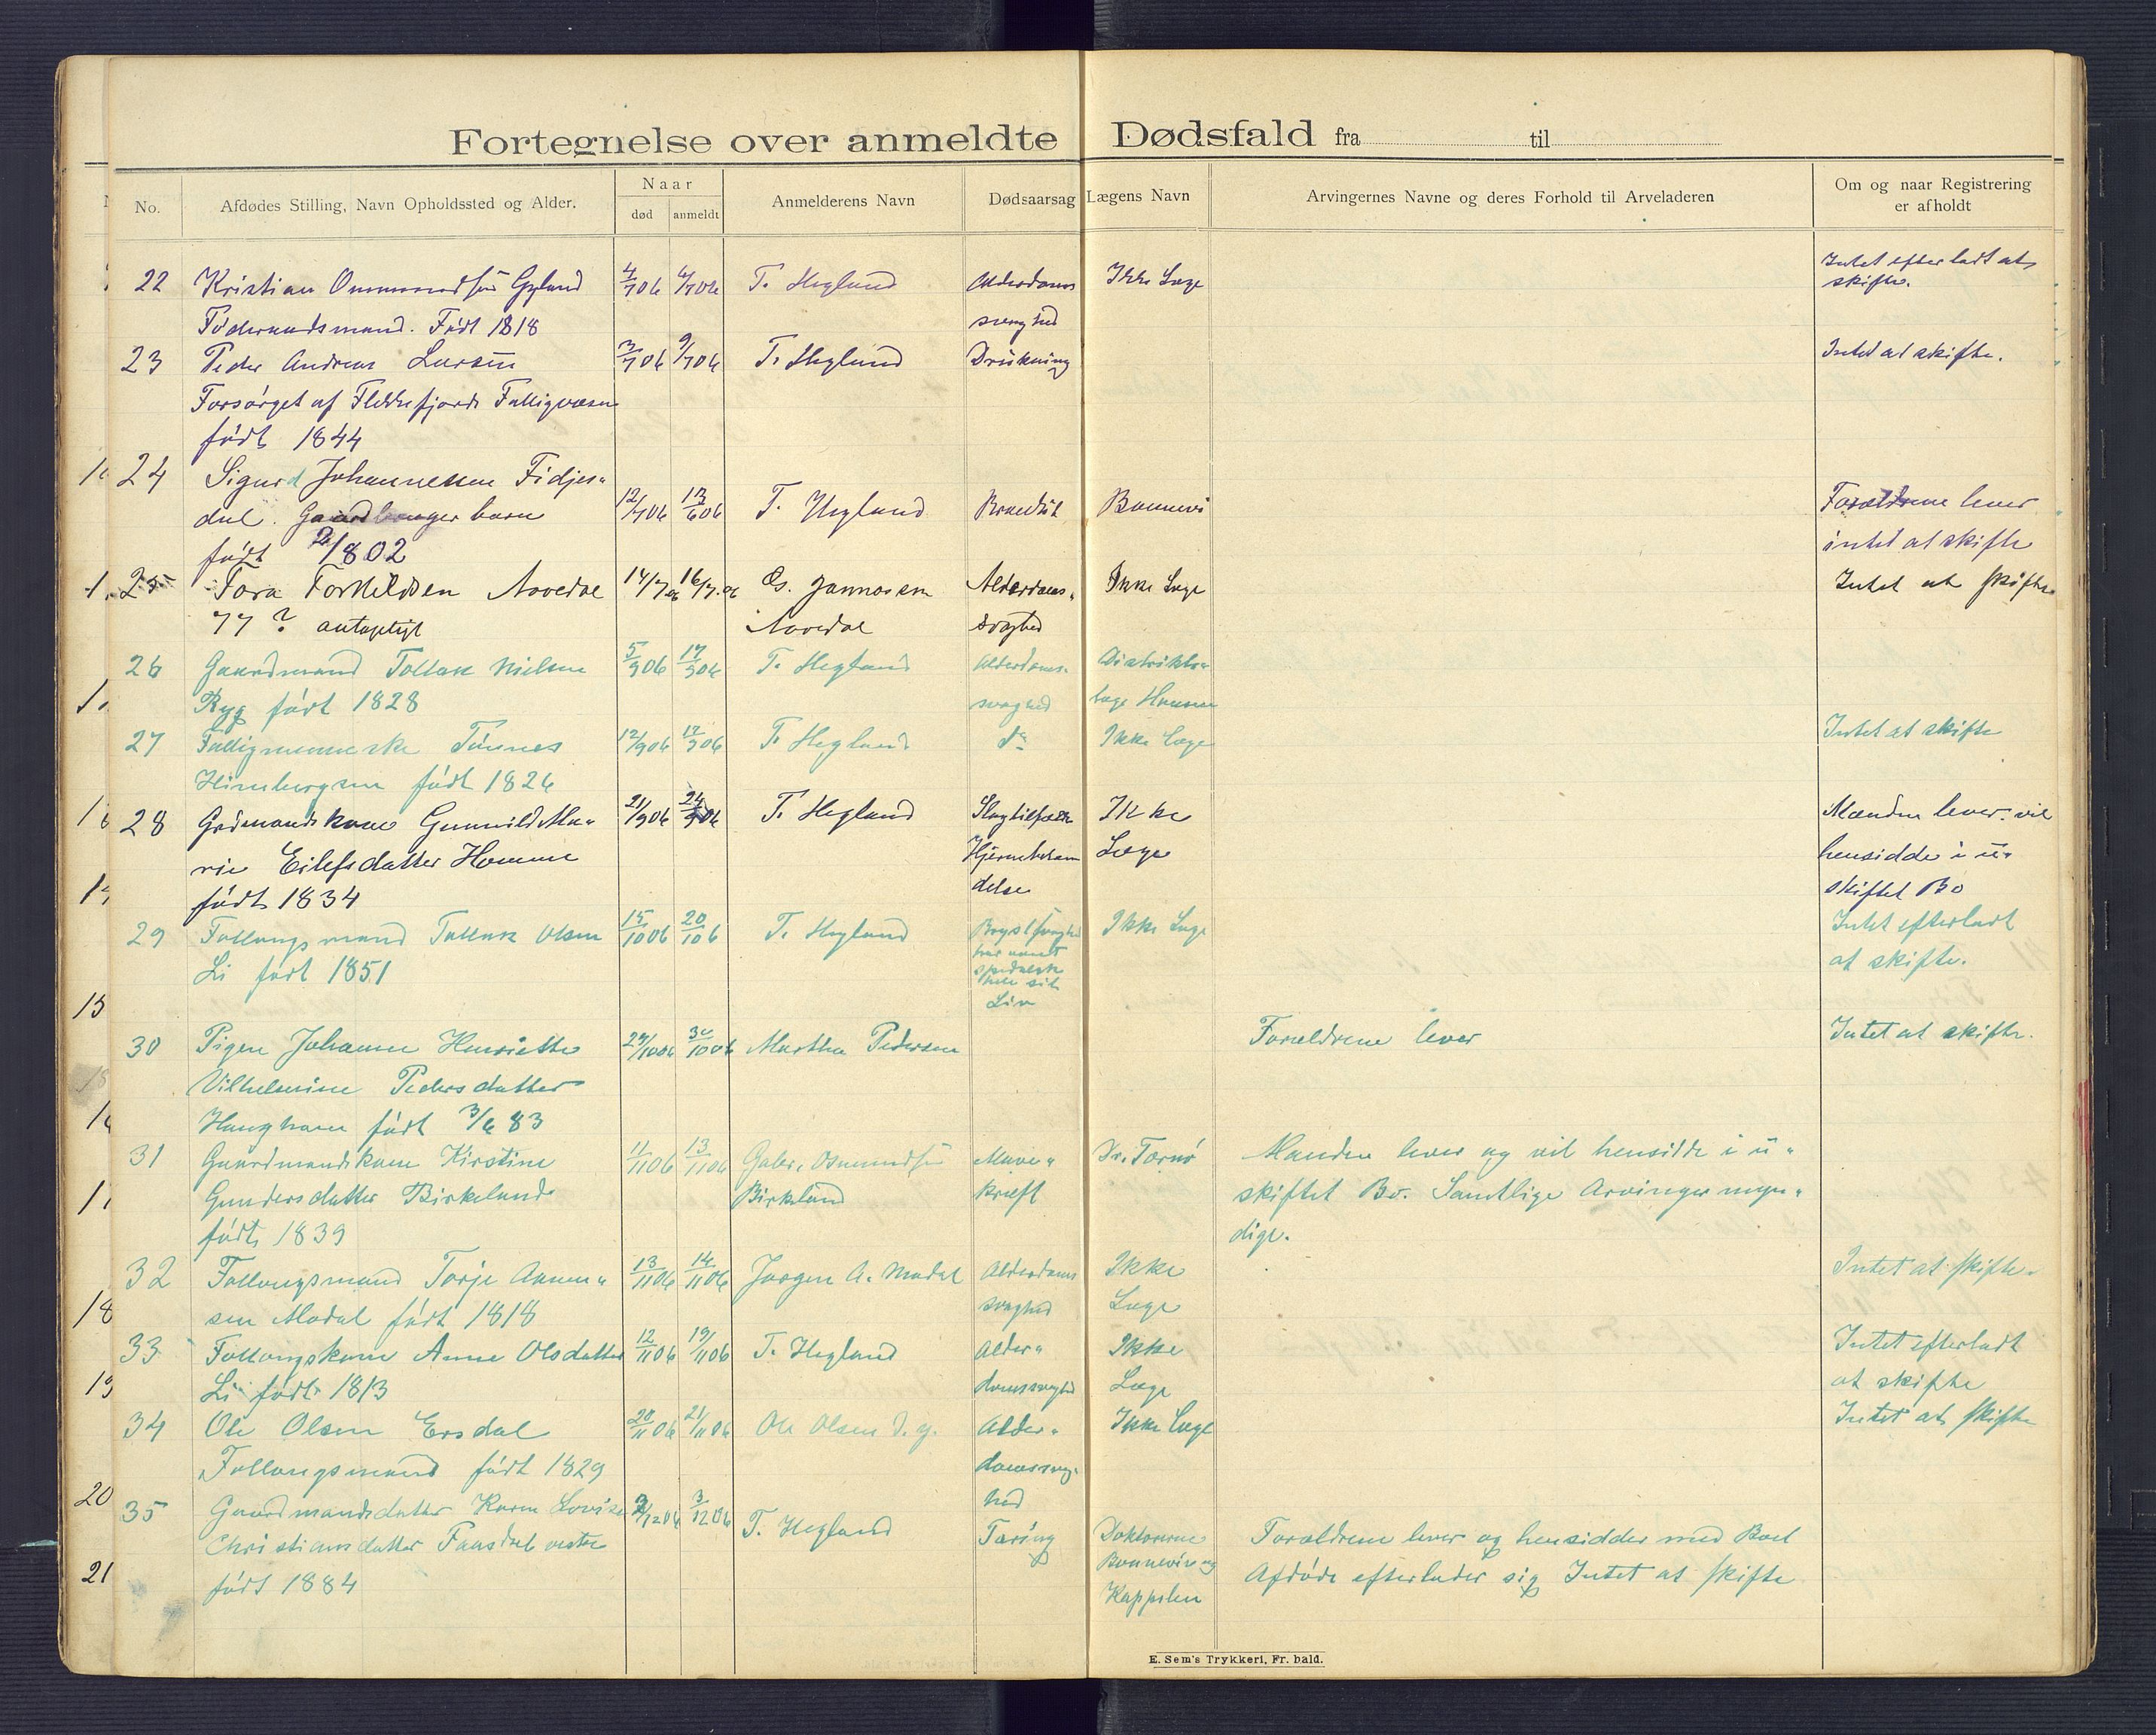 Fortegnelse over anmeldte Dødsfald fra til
No. Afdødes Stilling, Navn Opholdssted og Alder. Naar død anmeldt Anmelderens Navn Dødsaarsag Lægens Navn Arvingernes Navne og deres Forhold til Arveladeren Om og naar Registrering er afholdt
22 Kristian Ommundsen Gyland 4/7 06 6/7 06 T. Hegland Alderdoms Ikke Læge Intet efterladt at
Føderaadsmand. Født 1818 svaghed skifte.
23 Peder Andreas Larsen 3/7 06 9/7 06 T. Hegland Drukning Intet at skifte.
Forsørget af Flekkefjords Fattigvæsen
født 1844
24 Sigurd Johannessen Fidjes-
dal. Gaardbruger barn 12/7 06 13/6 06 T. Hegland Bonnevi Forældrene lever
født 2/8 02 intet at skifte
25 Tora Torkeldsen Aavedal 14/7 06 16/7 06 Os. Jannosem Alderdoms- Ikke Læge Intet at skifte
77 ? antagelig Aavedal svaghed
26 Gaardmand Tollak Nielsen 5/9 06 17/9 06 T. Hegland Alderdoms- Distrikts-
Ryg født 1828 svaghed læge Hansen
27 Fattigmenneske Tønnes 12/9 06 17/9 06 T. Hegland do Ikke Læge Intet at skifte
født 1826
28 Grdmandskone Gunnild Ma- 21/9 06 24/9 06 T. Hegland Slagtilfælde Ikke Manden lever. vil
rie Eilefsdatter Homme Hjernebetæn Læge hensidde i u-
født 1834 delse skiftet Bo
29 Follougsmand Tollak Olsen 15/10 06 20/10 6 T. Hegland Brystsvaghed Ikke Læge Intet efterladt
Li født 1851 har været at skifte.
spedalsk
hele sit
Liv
30 Pigen Johanne Henriette 29/10 06 30/10 06 Martha Pedersen Forældrene lever Intet at skifte.
Vilhelmine Pedersdatter
Haughom født 3/6 83
31 Gaardmandskone Kirstine 11/11 06 13/11 06 Gabr. Osmundsen Mave- Dr. Tornø Manden lever og vil hensidde i u-
Gundersdatter Birkeland Birkland kræft skiftet Bo. Samtlige Arvinger myn-
født 1839 dige.
32 Follougsmand Torje Aanen- 13/11 06 14/11 06 Jørgen A. Modal Alderdoms Ikke Intet at skifte.
sen Modal født 1818 svaghed Læge
33 Follougskone Anne Olsdatter 12/11 06 19/11 06 T. Hegland Alder- Ikke Intet efterladt
Li født 1813 domssvaghed Læge at skifte
34 Ole Olsen Ersdal 20/11 06 21/11 06 Ole Olsen d. y. Alder- Ikke Læge Intet at skifte
Follougsmand født 1829 domssvag-
hed
35 Gaardmandsdatter Karen Lovise 2/12 06 3/12 06 T. Hegland Tæring Doktorerne Forældrene lever og hensidder med Boet
Christiansdatter vestre Bonnevie og Afdøde efterlader sig Intet at skifte
født 1884 Kappelen
E. Sem's Trykkeri, Fr. hald.